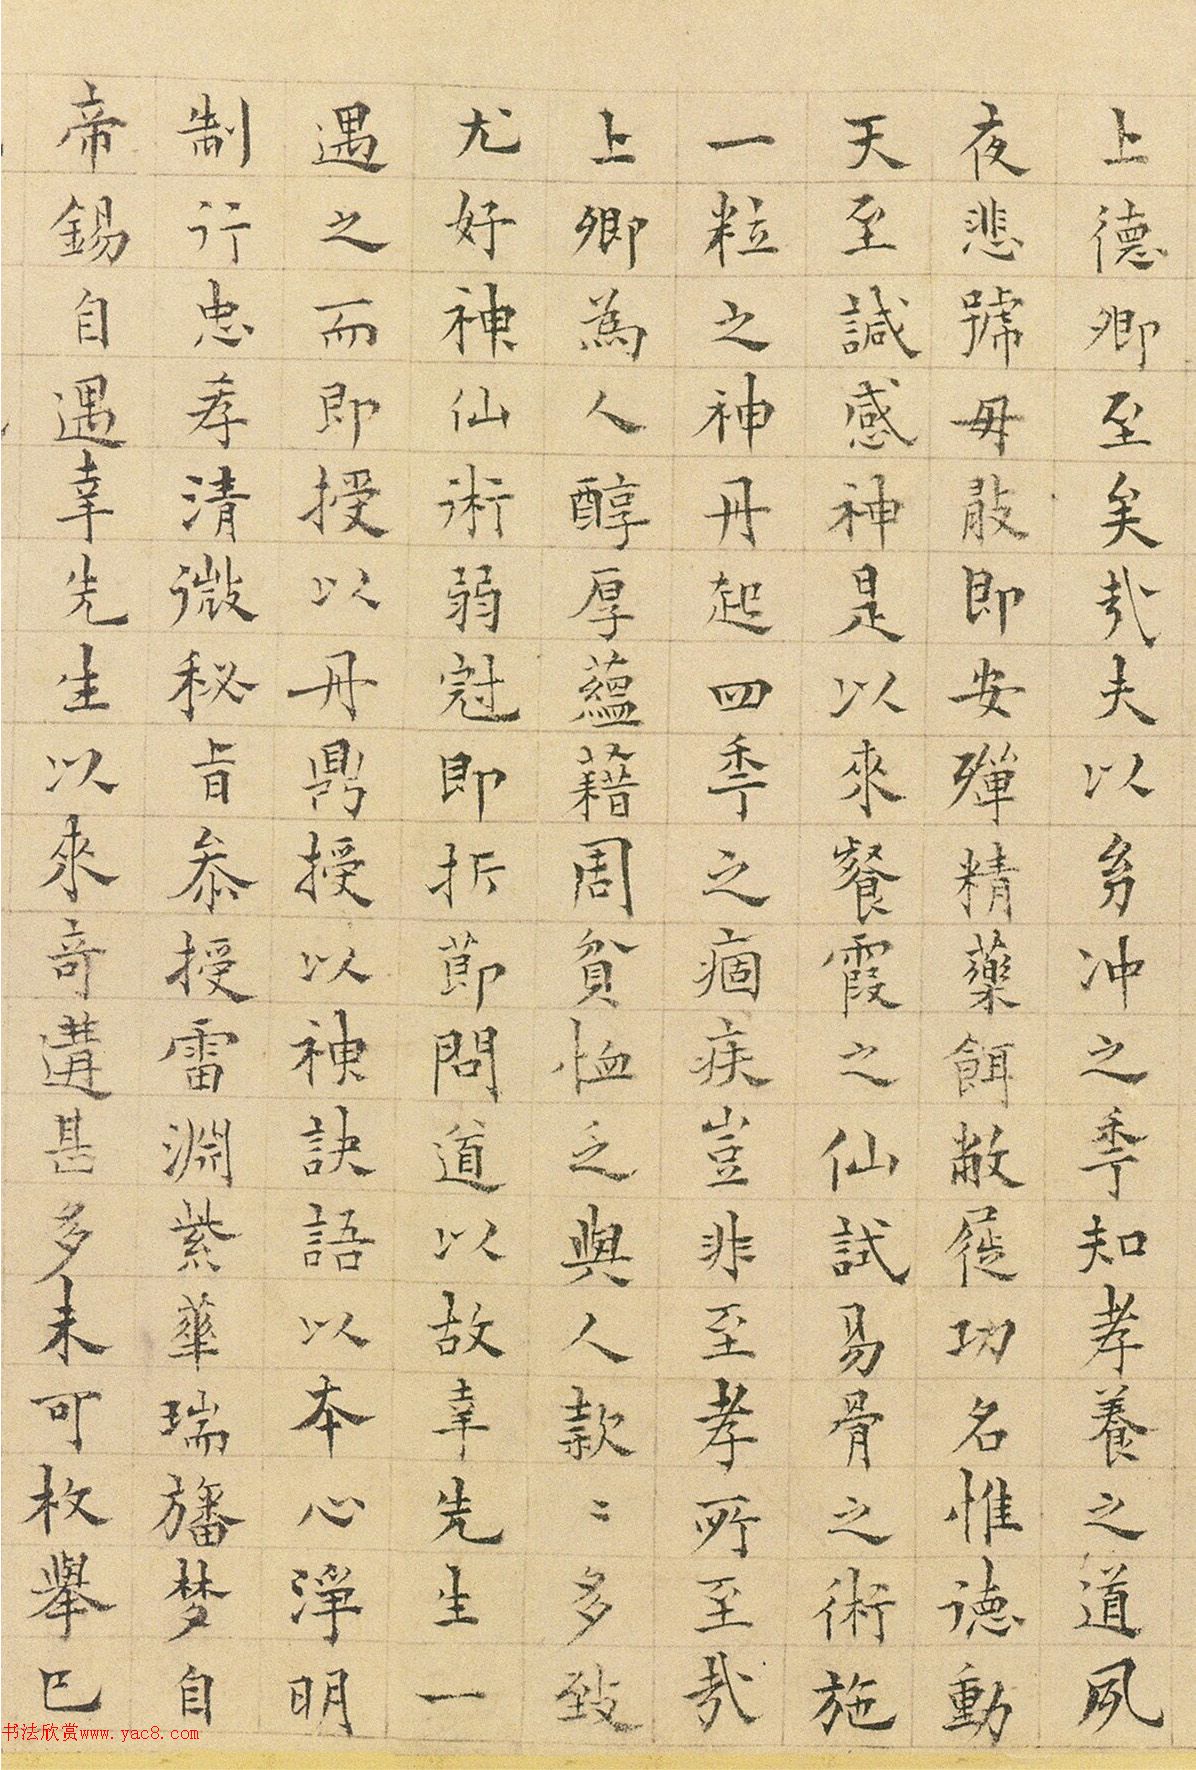 上德卿至矣哉夫以幼冲之秊知孝養之道夙
夜悲號毋敢即安殫精藥餌敝屣功名惟德動
天至諴感神是以來餐霞之仙試易骨之術施
一粒之神丹起四秊之痼疾豈非至孝所至哉
上卿為人醇厚蘊藉周貧恤乏與人款〻多致
尤好神仙術弱冠即折節問道以故幸先生一
遇之而即授以丹鼎授以神訣語以本心淨明
制行忠孝清微秘旨叅授雷淵紫華瑞旛梦自
帝錫自遇幸先生以來奇遘甚多未可枚舉已
书法欣赏www.yac8.com